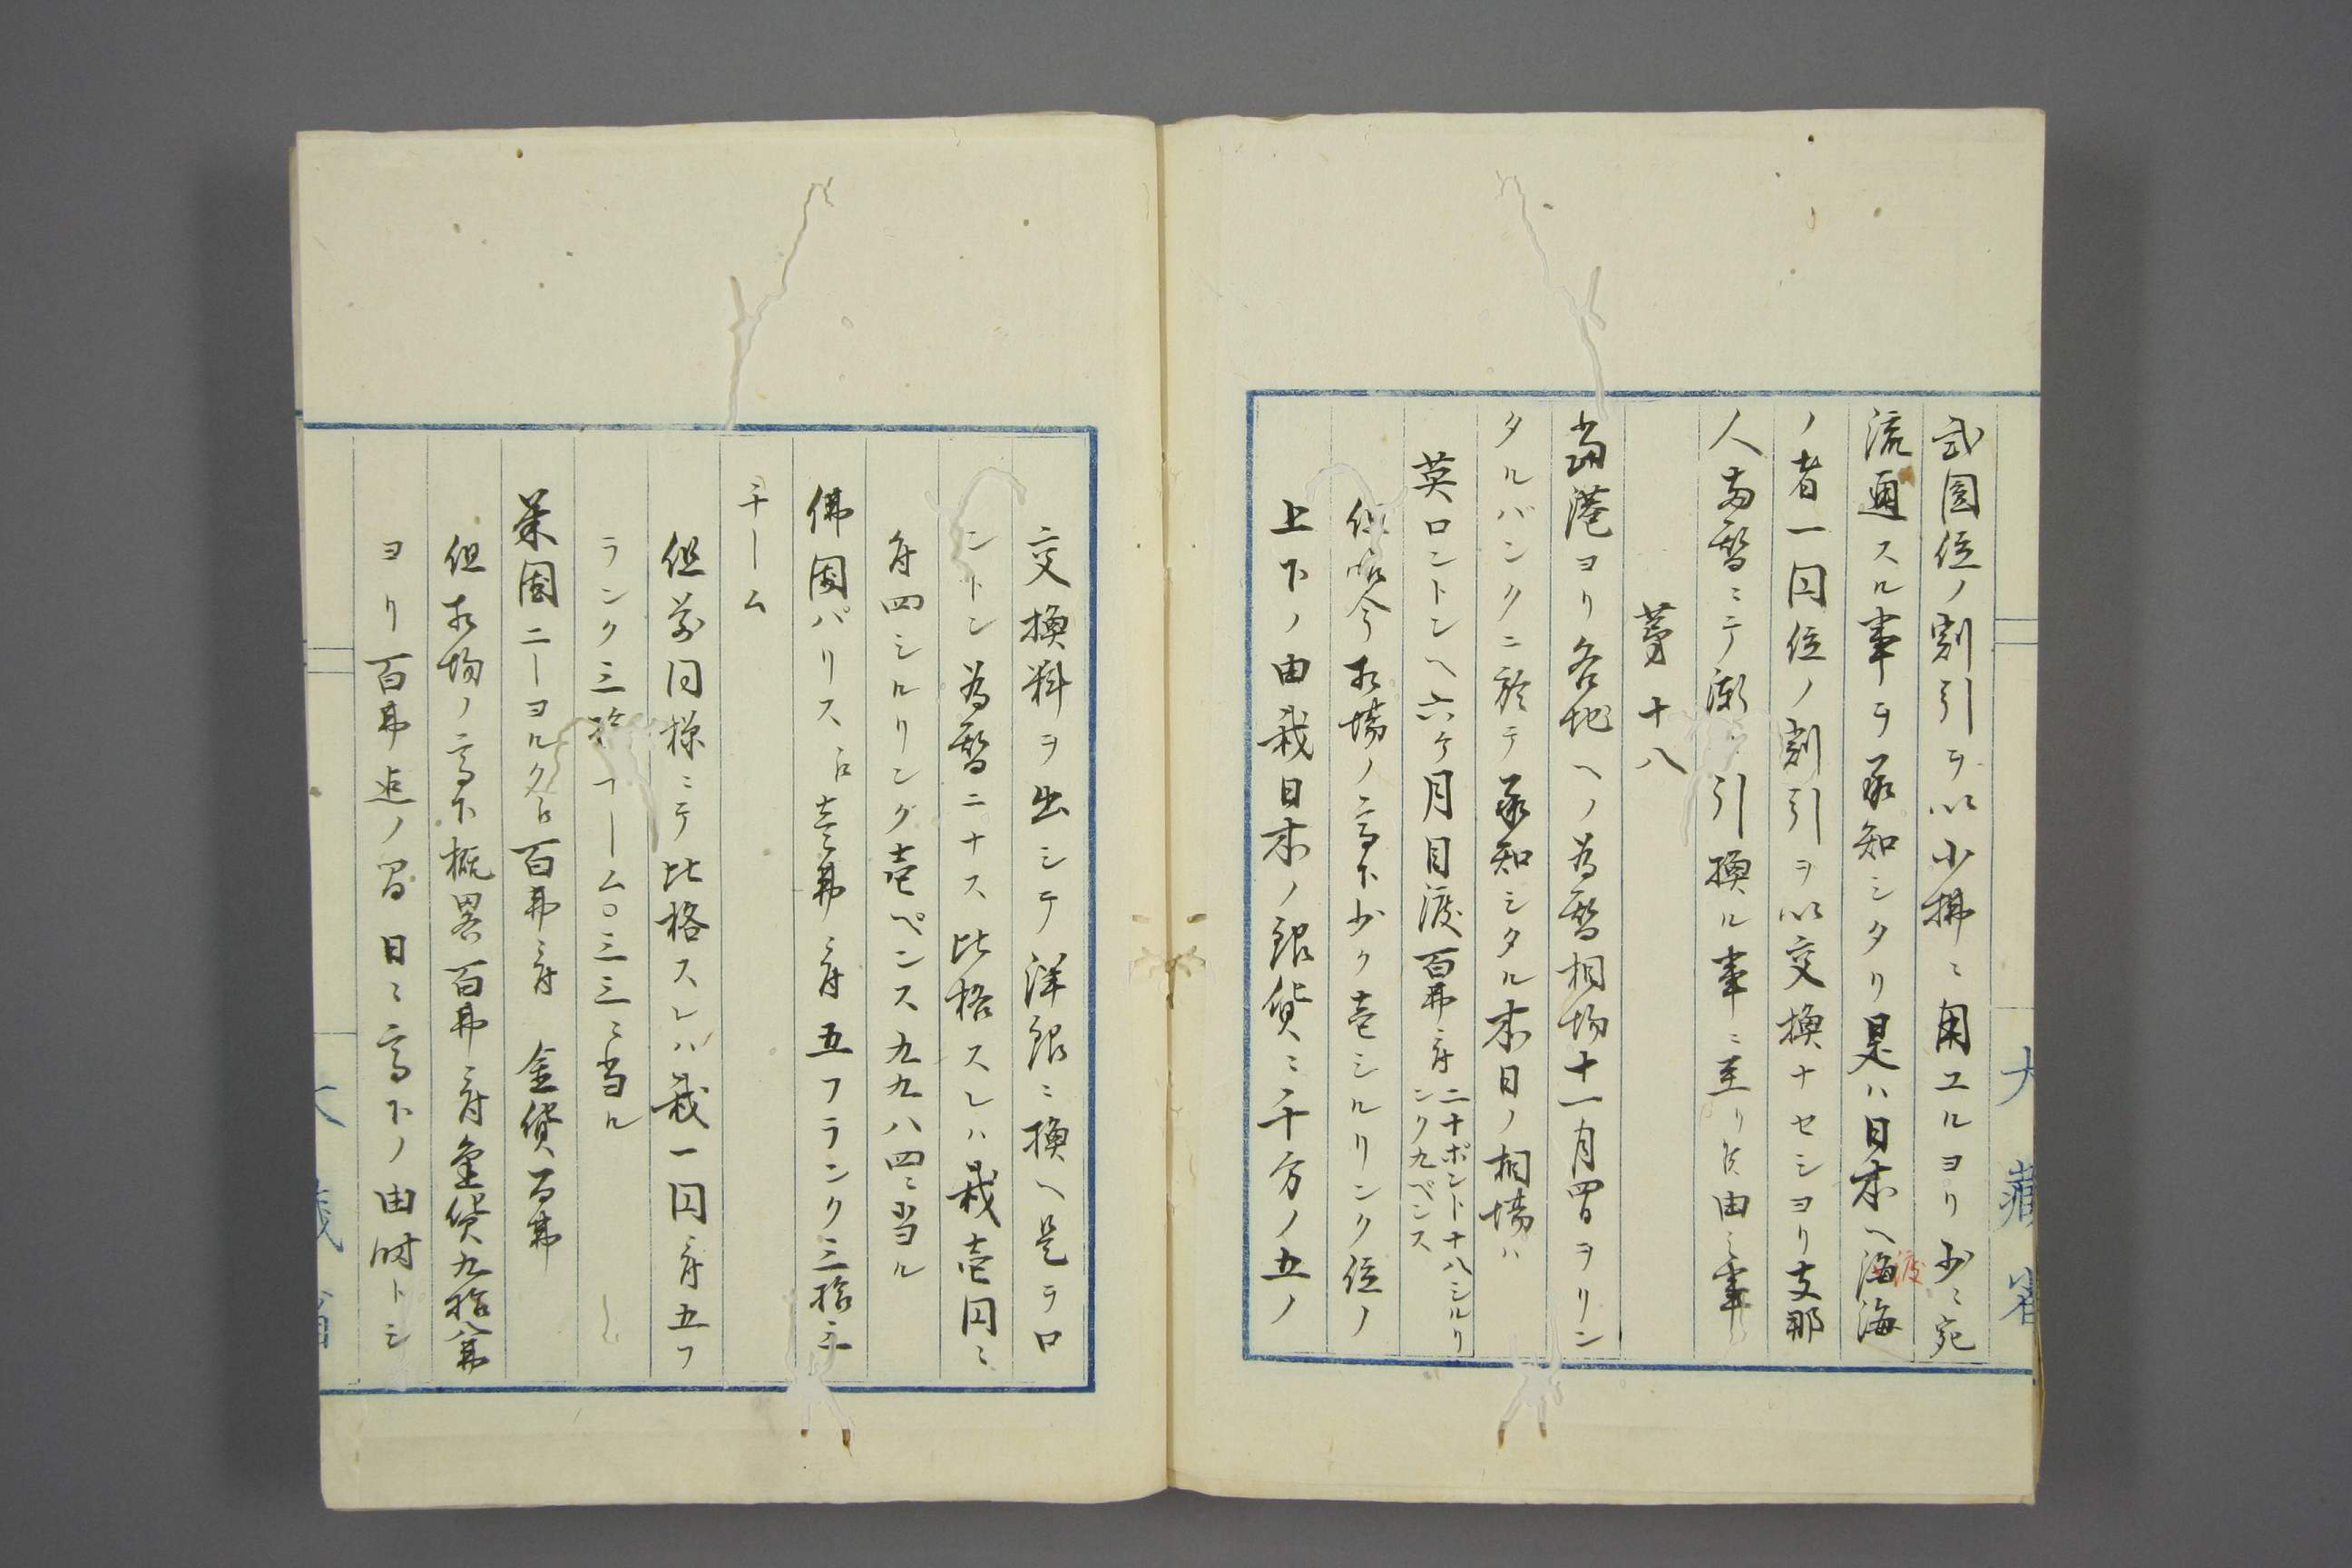 弐圓位ノ割引ヲ以小拂ニ用ユルヨリ少ニ宛
流通スル事ヲ承知シタリ是ハ日本ヘ海海
渡
ノ者一円位ノ割引ヲ以交換ナセシヨリ支那
人両替ニテ漸々引換ル事ニ至リ候由ニ事
第十八
当港ヨリ各地ヘノ為替相場十一月四日ヲリン
タルバンクニ於テ承知シタル本日ノ相場ハ
英ロントンヘ六ケ月目渡百弗ニ付二十ポント十八シルリ
ンク九ペンス
但昨今相場ノ高下少ク壱シルリンク位ノ
上下ノ由我日本ノ銀貨ニ千分ノ五ノ
交換料ヲ出シテ洋銀ニ換ヘ是ヲロ
ントン為替ニナス比格スレハ我壱円ニ
付四シルリング壱ペンス九九八四ニ当ル
佛国パリス口壱弗ニ付五フランク三拾三
チーム
但前同様ニテ比格スレハ我一円ニ付五フ
ランク三拾チーム〇三三ニ当ル
米国ニーヨルク口百弗ニ付 金貨百弗
但相場ノ高下概畧百弗ニ付金貨九拾八弗
ヨリ百弗迄ノ間日ニ高下ノ由時トシ
大藏省